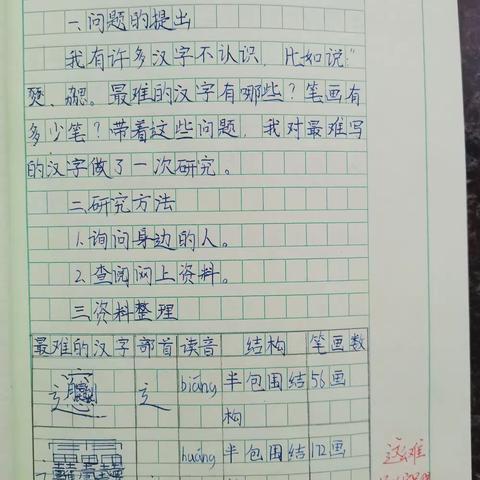 一、问题的提出
我有许多汉字不认识，比如说："
最难的汉字有哪些？笔画有
多少笔？带着这些问题，我对最难写
的汉字做了一次研究。
二、研究方法
1.询问身边的人。
2.查阅网上资料。
三、资料整理
最难的汉字 部首 读音 结构 笔画数
辶 biáng 半包围结构 56画
huáng 半包围结 172画
这难